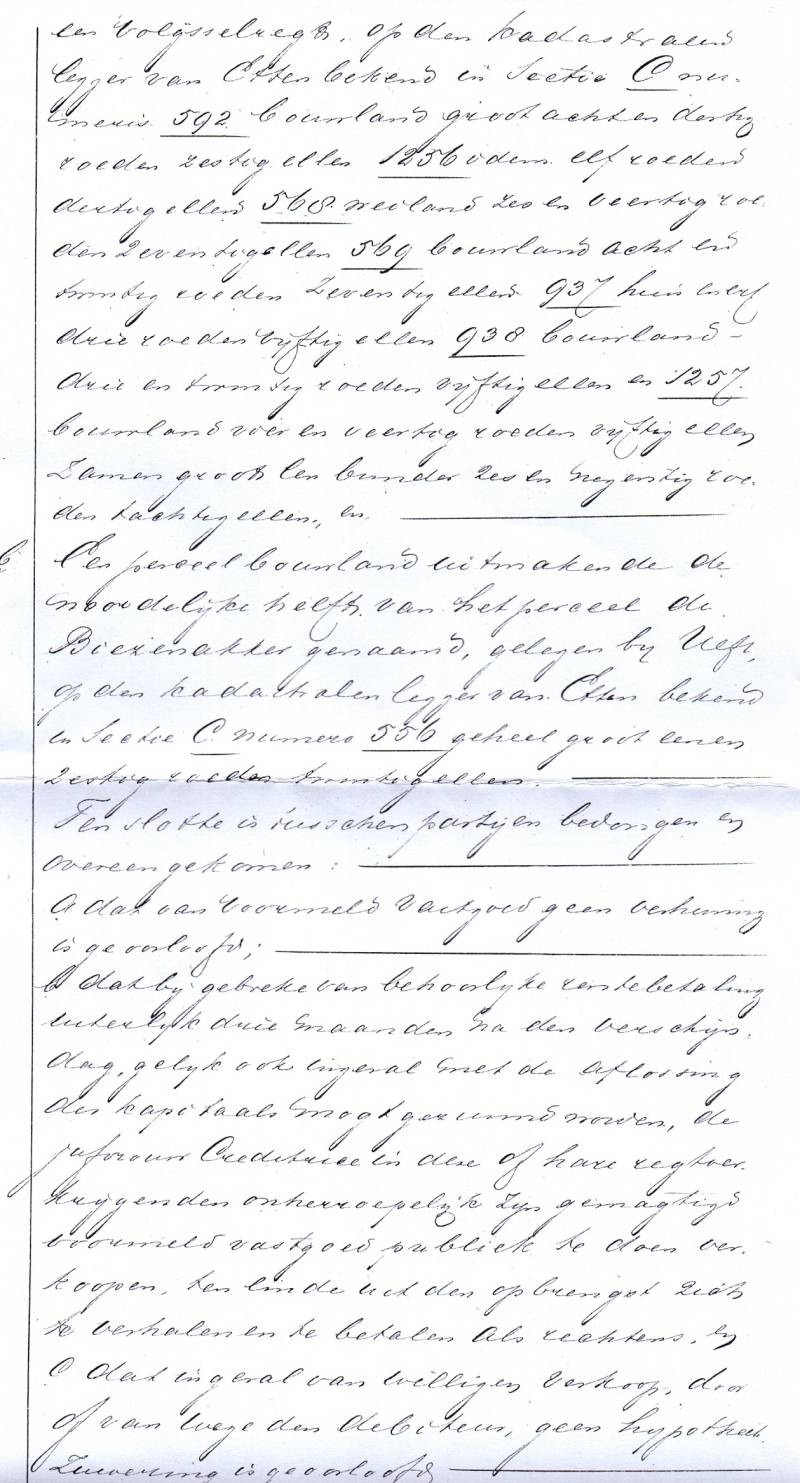 een Volijsselregt, op den kadastralen
legger van Etten bekend in Sectie C nu-
meris 592 bouwland groot acht en dertig
roeden zestig ellen 1256 idem elf roeden
dertig ellen 568 weiland zes en veertig roe-
den zeventig ellen 569 bouwland acht en
twintig roeden zeventig ellen 937 huis en erf
drie roeden vijftig ellen 938 bouwland -
drie en twintig roeden vijftig ellen en 1257
bouwland vier en veertig roeden vijftig ellen
Zamen groot een bunder zes en negentig roe-
den tachtig ellen, en
Een perceel bouwland uitmakende de
noordelijke helft van het perceel de
Biezenakker genaamd, gelegen by Ueft,
op den kadastralen legger van Etten bekend
in Sectie C numero 556 geheel groot eenen
zestig roeden twintig ellen.
Ten slotte is tusschen partijen bedongen en
overeengekomen:
a dat van voormeld vastgoed geen verhuring
is geoorloofd;
b dat by gebreke van behoorlyke rentebetaling
uiterlyk drie maanden na den verschyn-
dag, gelyk ook ingeval met de aflossing
des kapitaals mogt gezuimd worden, de
jufvrouw Creditrice in deze of hare regtver-
krijgenden onherroepelijk zyn gemagtigd
voormeld vastgoed publiek te doen ver-
koopen, ten einde uit den opbrengst zich
te verhalen en te betalen als rechtens, en
C dat ingeval van willigen verkoop, door
of van wege den debiteur, geen hypotheek-
Zuivering is geoorloofd